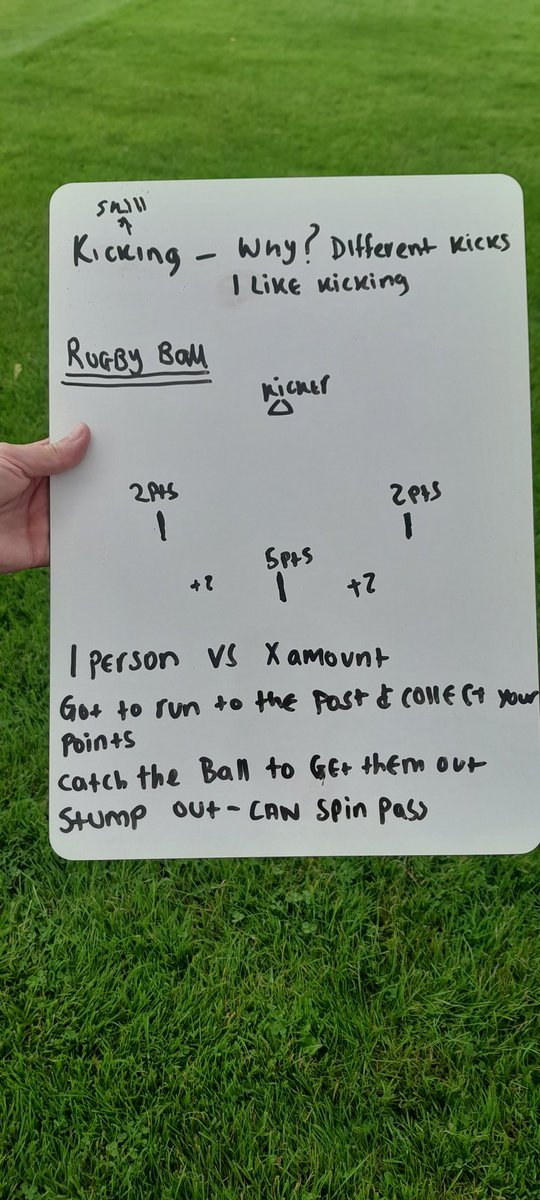 Skill
Kicking - Why? Different kicks
I Like kicking
Rugby Ball
kicker
2pts
2pts
5pts
+2
+2
1 person vs X amount
Got to run to the post & collect your
points
catch the Ball to Get them out
Stump out - CAN Spin Pass